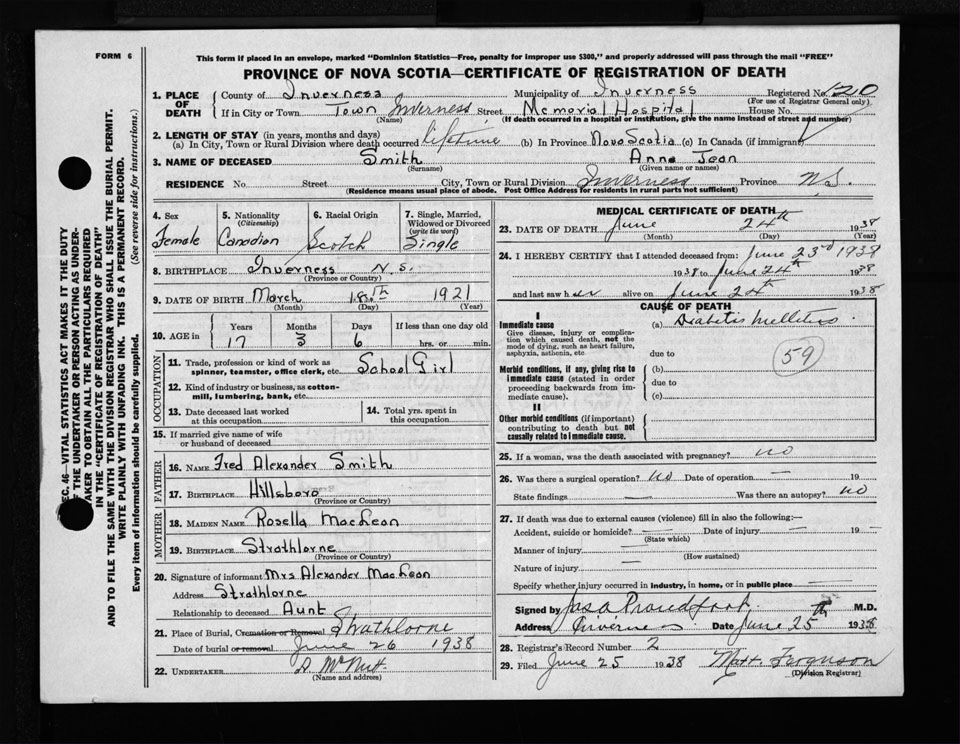 FORM 6
This form if placed in an envelope, marked "Dominion Statistics—Free, penalty for improper use $300," and properly addressed will pass through the mail "FREE"
PROVINCE OF NOVA SCOTIA—CERTIFICATE OF REGISTRATION OF DEATH
1. PLACE OF DEATH
County of Inverness Municipality of Inverness Registered No. 120
(For use of Registrar General only)
If in City or Town Town Inverness Street Memorial Hospital House No.
(Name) (If death occurred in a hospital or institution, give the name instead of street and number)
2. LENGTH OF STAY (in years, months and days)
(a) In City, Town or Rural Division where death occurred lifetime (b) In Province Nova Scotia (c) In Canada (if immigrant)
3. NAME OF DECEASED Smith Anna Jean
(Surname) (Given name or names)
RESIDENCE No. Street City, Town or Rural Division Inverness Province N.S.
(Residence means usual place of abode. Post Office Address for residents in rural parts not sufficient)
4. Sex Female
5. Nationality (Citizenship) Canadian
6. Racial Origin Scotch
7. Single, Married, Widowed or Divorced (write the word) Single
8. BIRTHPLACE Inverness N.S.
(Province or Country)
9. DATE OF BIRTH March 18th 1921
(Month) (Day) (Year)
10. AGE in Years Months Days If less than one day old
17 3 6 hrs. or min.
OCCUPATION
11. Trade, profession or kind of work as spinner, teamster, office clerk, etc. School Girl
12. Kind of industry or business, as cotton-mill, lumbering, bank, etc.
13. Date deceased last worked at this occupation
14. Total yrs. spent in this occupation
15. If married give name of wife or husband of deceased
FATHER
16. NAME Fred Alexander Smith
17. BIRTHPLACE Hillsboro
MOTHER
18. MAIDEN NAME Rosella MacLean
19. BIRTHPLACE Strathlorne
(Province or Country)
20. Signature of informant Mrs Alexander MacLean
Address Strathlorne
Relationship to deceased Aunt
21. Place of Burial, Cremation or Removal Strathlorne
Date of burial or removal June 26 1938
22. UNDERTAKER D. McNutt
(Name and address)
MEDICAL CERTIFICATE OF DEATH
23. DATE OF DEATH June 24th 1938
(Month) (Day) (Year)
24. I HEREBY CERTIFY that I attended deceased from: June 23rd 1938
1938 to June 24th 1938
and last saw her alive on June 24th 1938
CAUSE OF DEATH
I
Immediate cause
Give disease, injury or complication which caused death, not the mode of dying, such as heart failure, asphyxia, asthenia, etc
(a) Diabetis Mellitus
due to
59
Morbid conditions, if any, giving rise to immediate cause (stated in order proceeding backwards from immediate cause).
(b)
due to
(c)
II
Other morbid conditions (if important) contributing to death but not causally related to immediate cause.
25. If a woman, was the death associated with pregnancy? no
26. Was there a surgical operation? no Date of operation — 19
State findings — Was there an autopsy? no
27. If death was due to external causes (violence) fill in also the following:—
Accident, suicide or homicide? — Date of injury — 19 —
(State which)
Manner of injury —
(How sustained)
Nature of injury —
Specify whether injury occurred in industry, in home, or in public place —
Signed by Jas A Proudfoot M.D.
Address Inverness Date June 25th 1938
28. Registrar's Record Number 2
29. Filed June 25 1938 Matt. Ferguson
(Division Registrar)
SEC. 46—VITAL STATISTICS ACT MAKES IT THE DUTY
OF THE UNDERTAKER OR PERSON ACTING AS UNDER-
TAKER TO OBTAIN ALL THE PARTICULARS REQUIRED
IN THE "CERTIFICATE OF REGISTRATION OF DEATH"
AND TO FILE THE SAME WITH THE DIVISION REGISTRAR WHO SHALL ISSUE THE BURIAL PERMIT.
WRITE PLAINLY WITH UNFADING INK. THIS IS A PERMANENT RECORD.
Every item of information should be carefully supplied. (See reverse side for instructions.)